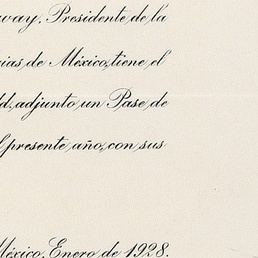 way, Presidente de la
ias de México, tiene el
d. adjunto un Pase de
l presente año, con sus
México, Enero de 1928.